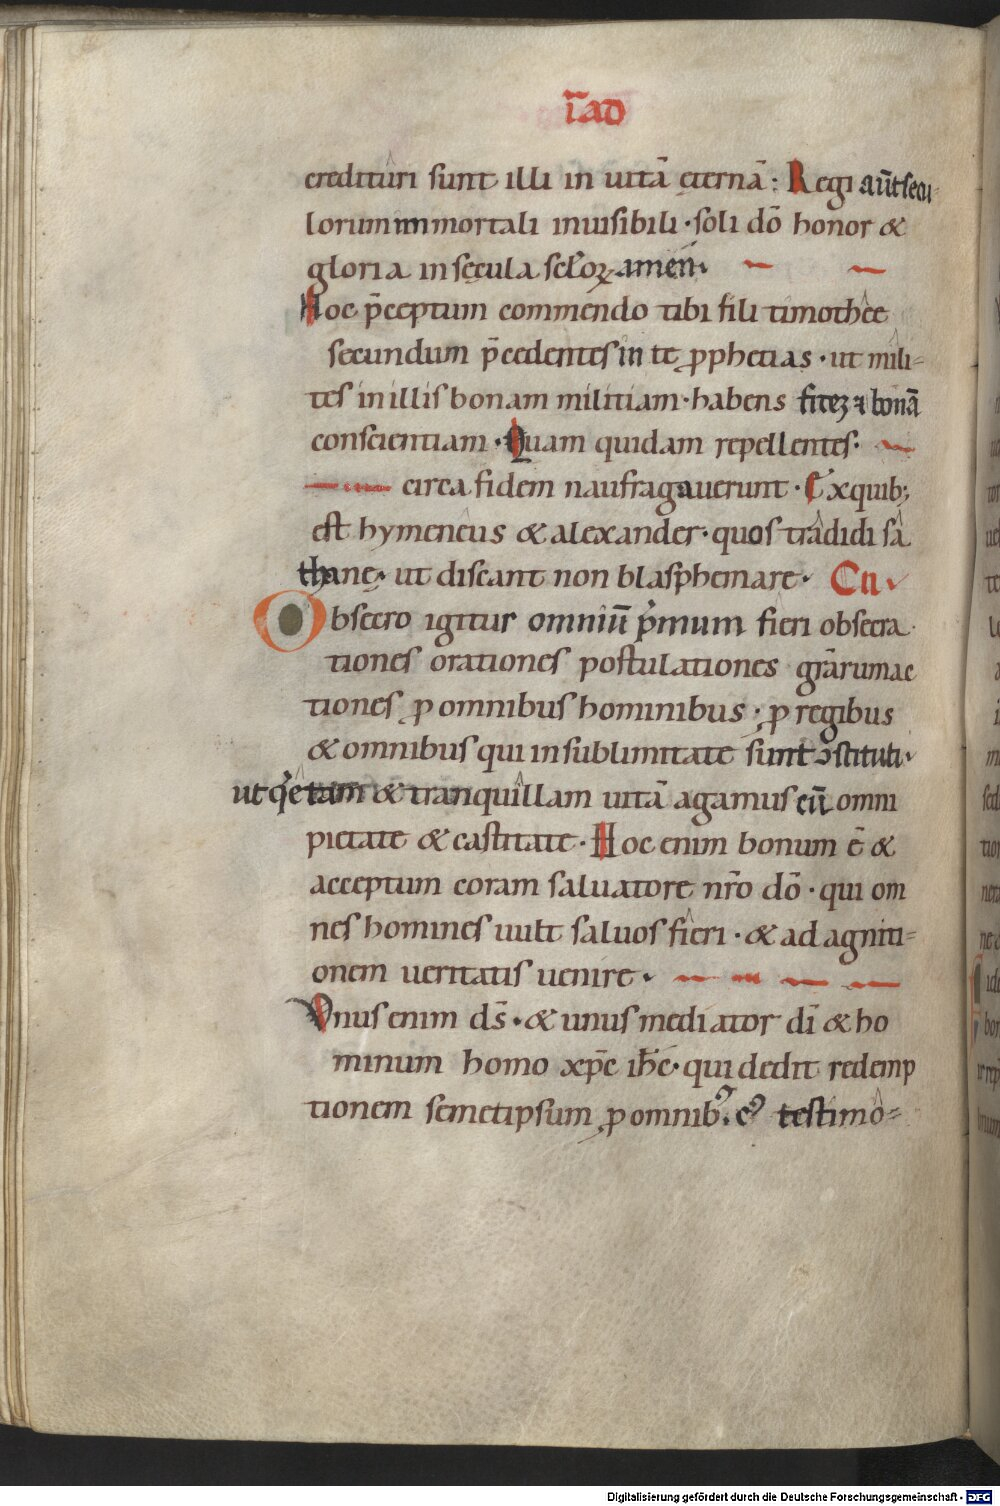 I͂ AD
credituri sunt illi in uitā ęternā: Regi aūt secu-
lorum immortali inuisibili · soli dō honor &
gloria in sęcula sclꝝ amen·
Hoc p̄ceptum commendo tibi fili timothee
secundum p̄cedentes in te ꝓphetias · ut mili-
tes in illis bonam militiam · habens fiteꝫ ⁊ bonā
conscientiam · Quam quidam repellentes·
circa fidem naufragauerunt · Ex quib;
est hymeneus & alexander · quos tradidi sa
thanę · ut discant non blasphemare · CII
Obsecro igitur omniū p̄mum fieri obsecra·
tiones orationes postulationes grārum ac
tiones ꝓ omnibus hominibus · ꝓ regibus
& omnibus qui in sublimitate sunt ↄstituti·
ut q'etam & tranquillam uitā agamus cū omni
pietate & castitate · Hoc enim bonum ē &
acceptum coram saluatore nr̄o dō · qui om
nes homines uult saluos fieri · & ad agniti-
onem ueritatis uenire ·
Vnus enim ds̄ · & unus mediator dī & ho
minum homo xp̄c ih̄c · qui dedit redemp
tionem semetipsum ꝓ omnib; testimo-
Digitalisierung gefördert durch die Deutsche Forschungsgemeinschaft - DFG